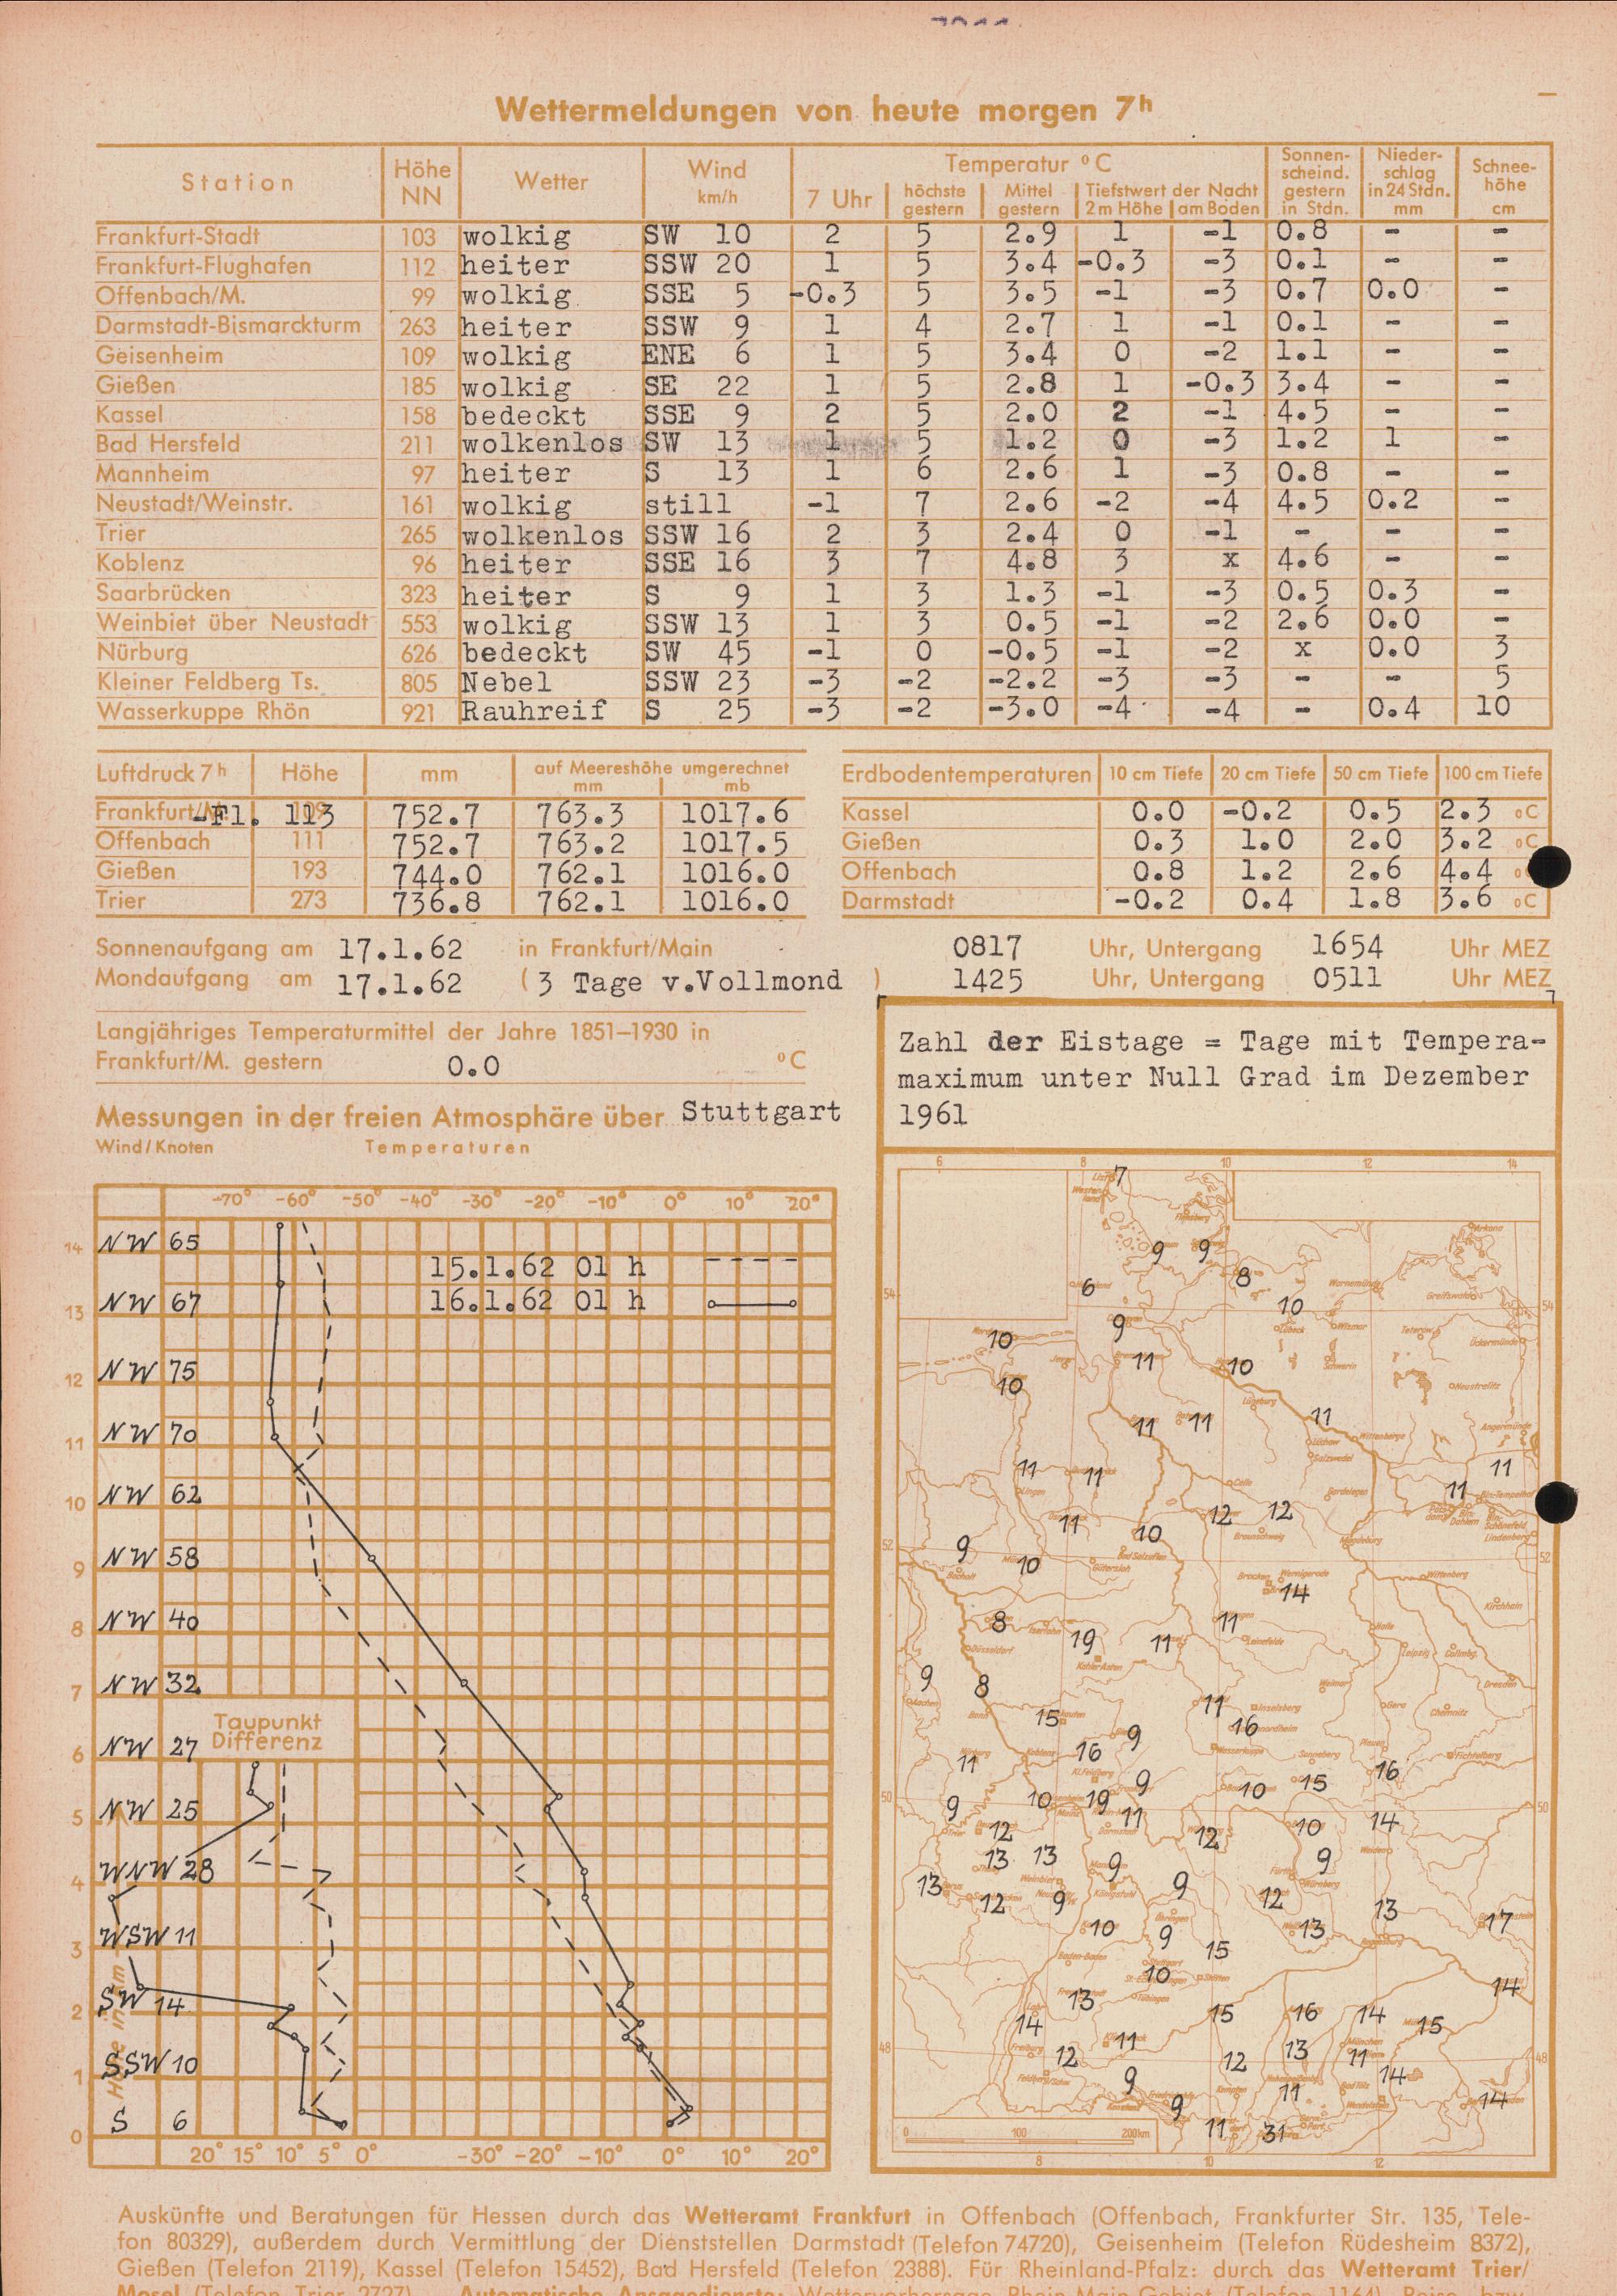 Wettermeldungen von heute morgen 7h
Station Höhe NN Wetter Wind km/h Temperatur °C Sonnen-scheind. gestern in Stdn. Nieder-schlag in 24 Stdn. mm Schnee-höhe cm
7 Uhr höchste gestern Mittel gestern Tiefstwert der Nacht 2m Höhe am Boden
Frankfurt-Stadt 103 wolkig SW 10 2 5 2.9 1 -1 0.8 - -
Frankfurt-Flughafen 112 heiter SSW 20 1 5 3.4 -0.3 -3 0.1 - -
Offenbach/M. 99 wolkig SSE 5 -0.3 5 3.5 -1 -3 0.7 0.0 -
Darmstadt-Bismarckturm 263 heiter SSW 9 1 4 2.7 1 -1 0.1 - -
Geisenheim 109 wolkig ENE 6 1 5 3.4 0 -2 1.1 - -
Gießen 185 wolkig SE 22 1 5 2.8 1 -0.3 3.4 - -
Kassel 158 bedeckt SSE 9 2 5 2.0 2 -1 4.5 - -
Bad Hersfeld 211 wolkenlos SW 13 1 5 1.2 0 -3 1.2 1 -
Mannheim 97 heiter S 13 1 6 2.6 1 -3 0.8 - -
Neustadt/Weinstr. 161 wolkig still -1 7 2.6 -2 -4 4.5 0.2 -
Trier 265 wolkenlos SSW 16 2 3 2.4 0 -1 - - -
Koblenz 96 heiter SSE 16 3 7 4.8 3 x 4.6 - -
Saarbrücken 323 heiter S 9 1 3 1.3 -1 -3 0.5 0.3 -
Weinbiet über Neustadt 553 wolkig SSW 13 1 3 0.5 -1 -2 2.6 0.0 -
Nürburg 626 bedeckt SW 45 -1 0 -0.5 -1 -2 x 0.0 3
Kleiner Feldberg Ts. 805 Nebel SSW 23 -3 -2 -2.2 -3 -3 - - 5
Wasserkuppe Rhön 921 Rauhreif S 25 -3 -2 -3.0 -4 -4 - 0.4 10
Luftdruck 7h Höhe mm auf Meereshöhe umgerechnet mm mb
Frankfurt/M.-Fl. 113 752.7 763.3 1017.6
Offenbach 111 752.7 763.2 1017.5
Gießen 193 744.0 762.1 1016.0
Trier 273 736.8 762.1 1016.0
Erdbodentemperaturen 10 cm Tiefe 20 cm Tiefe 50 cm Tiefe 100 cm Tiefe
Kassel 0.0 -0.2 0.5 2.3 °C
Gießen 0.3 1.0 2.0 3.2 °C
Offenbach 0.8 1.2 2.6 4.4
Darmstadt -0.2 0.4 1.8 3.6 °C
Sonnenaufgang am 17.1.62 in Frankfurt/Main 0817 Uhr, Untergang 1654 Uhr MEZ
Mondaufgang am 17.1.62 (3 Tage v.Vollmond) 1425 Uhr, Untergang 0511 Uhr MEZ
Langjähriges Temperaturmittel der Jahre 1851–1930 in
Frankfurt/M. gestern 0.0 °C
Messungen in der freien Atmosphäre über Stuttgart
Wind/Knoten Temperaturen
-70° -60° -50° -40° -30° -20° -10° 0° 10° 20°
14 NW 65
15.1.62 01 h
16.1.62 01 h
13 NW 67
12 NW 75
11 NW 70
10 NW 62
9 NW 58
8 NW 40
7 NW 32
Taupunkt
Differenz
6 NW 27
5 NW 25
4 WNW 28
3 WSW 11
2 SW 14
1 SSW 10
0 S 6
Höhe in km
20° 15° 10° 5° 0° -30° -20° -10° 0° 10° 20°
Zahl der Eistage = Tage mit Tempera-
maximum unter Null Grad im Dezember
1961
6 8 10 12 14
7
9 9
6 8
10
54 54
10 9
11 10
10
11 11 11
11 11 11
11
11 10 12 12
9 10
52 52
14
8 19 11 11
9 8
15 11 16
11 16 9
16
9 10 19 9 10 15
50 50
12 11 12 10 14
13 13 9 9
13 12 9 9 12
10 9 13 13 17
10 15
14
13 15 16 14
14 15
12 11 12 13 11
48 48
14
9 9 11 14
11 31
0 100 200km
8 10 12
Auskünfte und Beratungen für Hessen durch das Wetteramt Frankfurt in Offenbach (Offenbach, Frankfurter Str. 135, Tele-
fon 80329), außerdem durch Vermittlung der Dienststellen Darmstadt (Telefon 74720), Geisenheim (Telefon Rüdesheim 8372),
Gießen (Telefon 2119), Kassel (Telefon 15452), Bad Hersfeld (Telefon 2388). Für Rheinland-Pfalz: durch das Wetteramt Trier/
Mosel (Telefon Trier 2727). Automatische Ansagedienste: Wettervorhersage Rhein-Main-Gebiet (Telefon 1164), Reise- bzw.